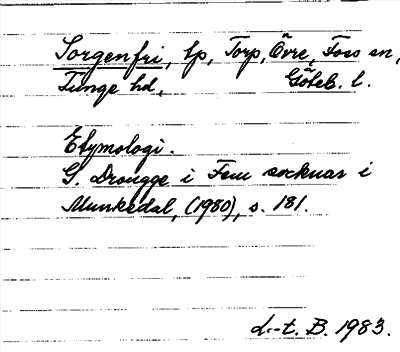 Sorgenfri, lp, Torp, Övre, Foss sn,
Tunge hd, Göteb. l.
Etymologi.
G. Drougge i Fem socknar i
Munkedal, (1980), s. 181.
L.-t. B. 1983.